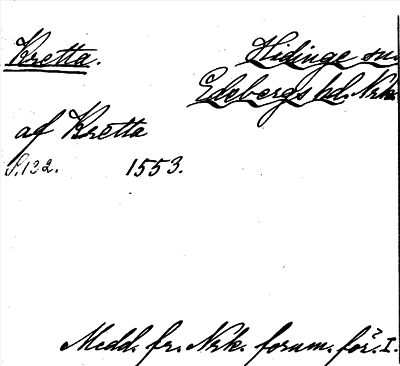 Kretta.
Hidinge sn.
Edebergs hd. Nrk.
af Kretta
S.132. 1553.
Medd. fr. Nrk. fornm. för. I.